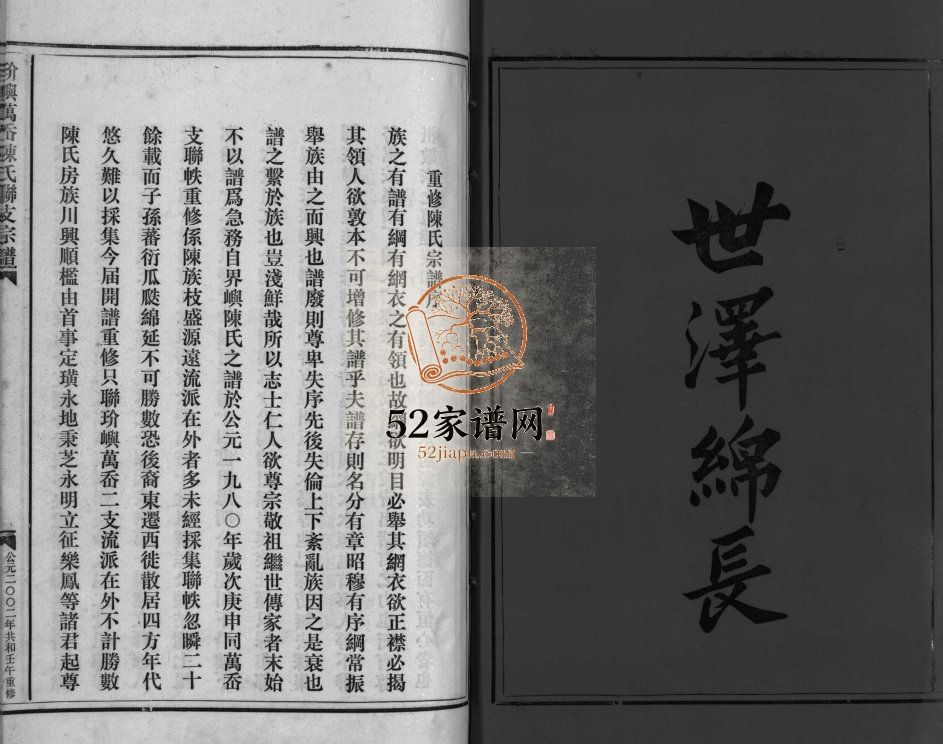 世澤綿長
重修陳氏宗譜序
族之有譜有綱有網衣之有領也故 欲明目必舉其網衣欲正襟必揭
其領人欲敦本不可增修其譜乎夫譜存則名分有章昭穆有序綱常振
舉族由之而興也譜廢則尊卑失序先後失倫上下紊亂族因之是衰也
譜之繫於族也豈淺鮮哉所以志士仁人欲尊宗敬祖繼世傳家者末始
不以譜爲急務自界嶼陳氏之譜於公元一九八〇年歲次庚申同萬岙
支聯帙重修係陳族枝盛源遠流派在外者多未經採集聯帙忽瞬二十
餘載而子孫蕃衍瓜瓞綿延不可勝數恐後裔東遷西徙散居四方年代
悠久難以採集今届開譜重修只聯玠嶼萬岙二支流派在外不計勝數
陳氏房族川興順檻由首事定璜永地秉芝永明立征樂鳳等諸君起尊
玠嶼萬岙陳氏聯支宗譜
公元二〇〇二年共和壬午重修
52家谱网
52jiapu.com